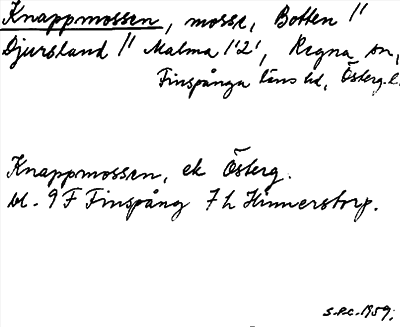 Knappmossen, mosse, Botten 1/1
Djursland 1/1 Malma 1/2, Regna sn,
Finspånga läns hd, Österg. l.
Knappmossen, ek Österg.
bl. 9 F Finspång 7 h Hinnerstorp.
S.P.C. 1959;